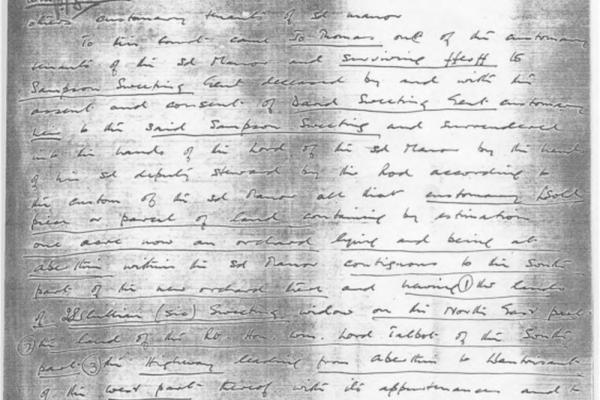 other customary tenants of sd manor
To this Court came Jo Thomas one of the customary
tenants of the sd Manor and surviving ffeoff to
Sampson Sweeting Gent deceased by and with the
assent and consent of David Sweeting Gent customary
heir to the said Sampson Sweeting and surrendered
into the hands of the Lord of the sd Manor by the hand
of his sd deputy steward by the Rod according to
the custom of the sd Manor all that customary
piece or parcel of land containing by estimation
one acre now an orchard lying and being at
Aberthin within the sd Manor contiguous to the South
part of the new orchard there and having ① the lands
of (Sic) Sweeting widow on the North East part
② the land of the Rt. Hon. Wm. Lord Talbot of the South
part ③ the Highway leading from Aberthin to Llantrisant
of the west part thereof with its appurtenances and to